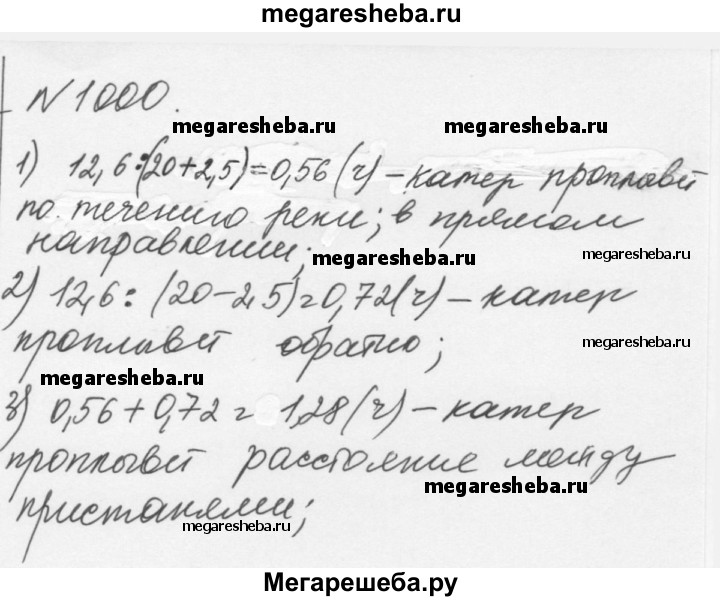 megaresheba.ru
N 1000.
megaresheba.ru megaresheba.ru
1) 12,6:(20+2,5)=0,56 (ч) – катер проплывёт
по течению реки; в прямом
направлении; megaresheba.ru megaresheba.ru
2) 12,6: (20-2,5)=0,72(ч) – катер
проплывёт обратно; megaresheba.ru
megaresheba.ru
3) 0,56+0,72 = 1,28 (ч) – катер
проплывёт расстояние между
megaresheba.ru
пристанями; megaresheba.ru
Мегарешеба.ру